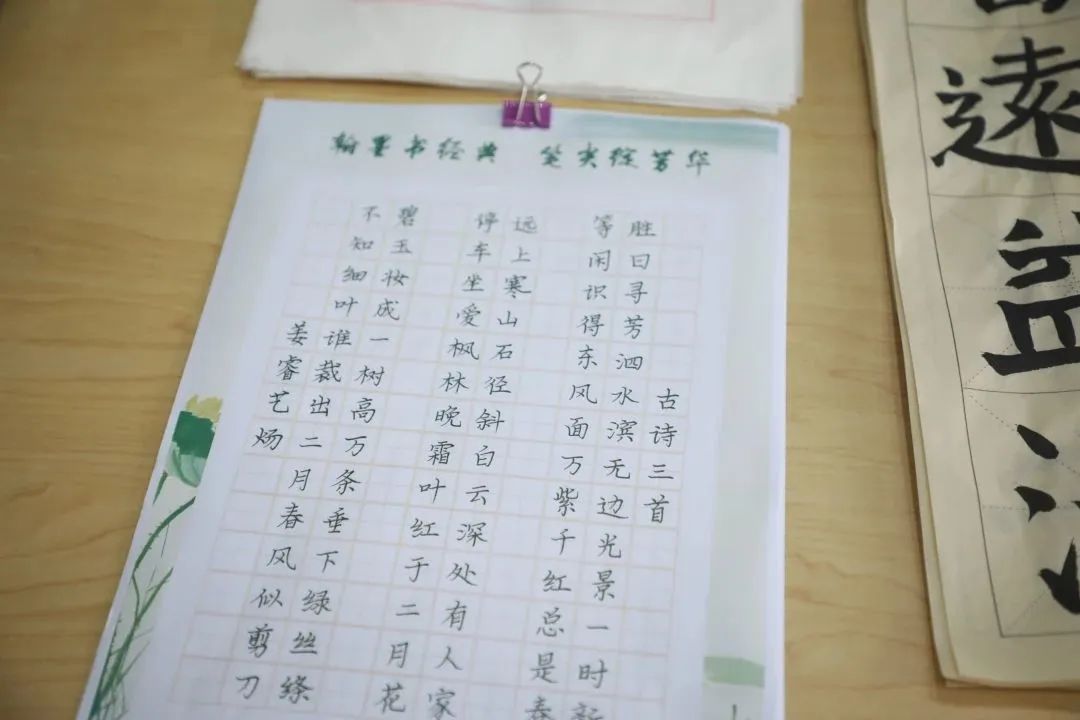 翰墨书经典 笔尖绽芳华
古诗三首
胜日寻芳泗水滨无边光景一时新
等闲识得东风面万紫千红总是春
远上寒山石径斜白云深处有人家
停车坐爱枫林晚霜叶红于二月花
碧玉妆成一树高万条垂下绿丝绦
不知细叶谁裁出二月春风似剪刀
姜睿艺炀
遠益